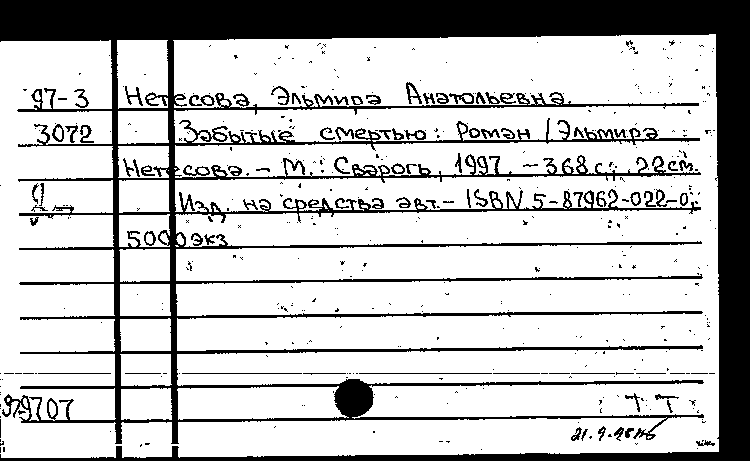 97-3 Нетесова, Эльмира Анатольевна.
3072 Забытые смертью: Роман / Эльмира
Нетесова. - М.: Сварогъ, 1997. - 368 с.; 22 см.
Изд. на средства авт. - ISBN 5-87962-022-0;
5000 экз
979707
Т Т
21.9.98